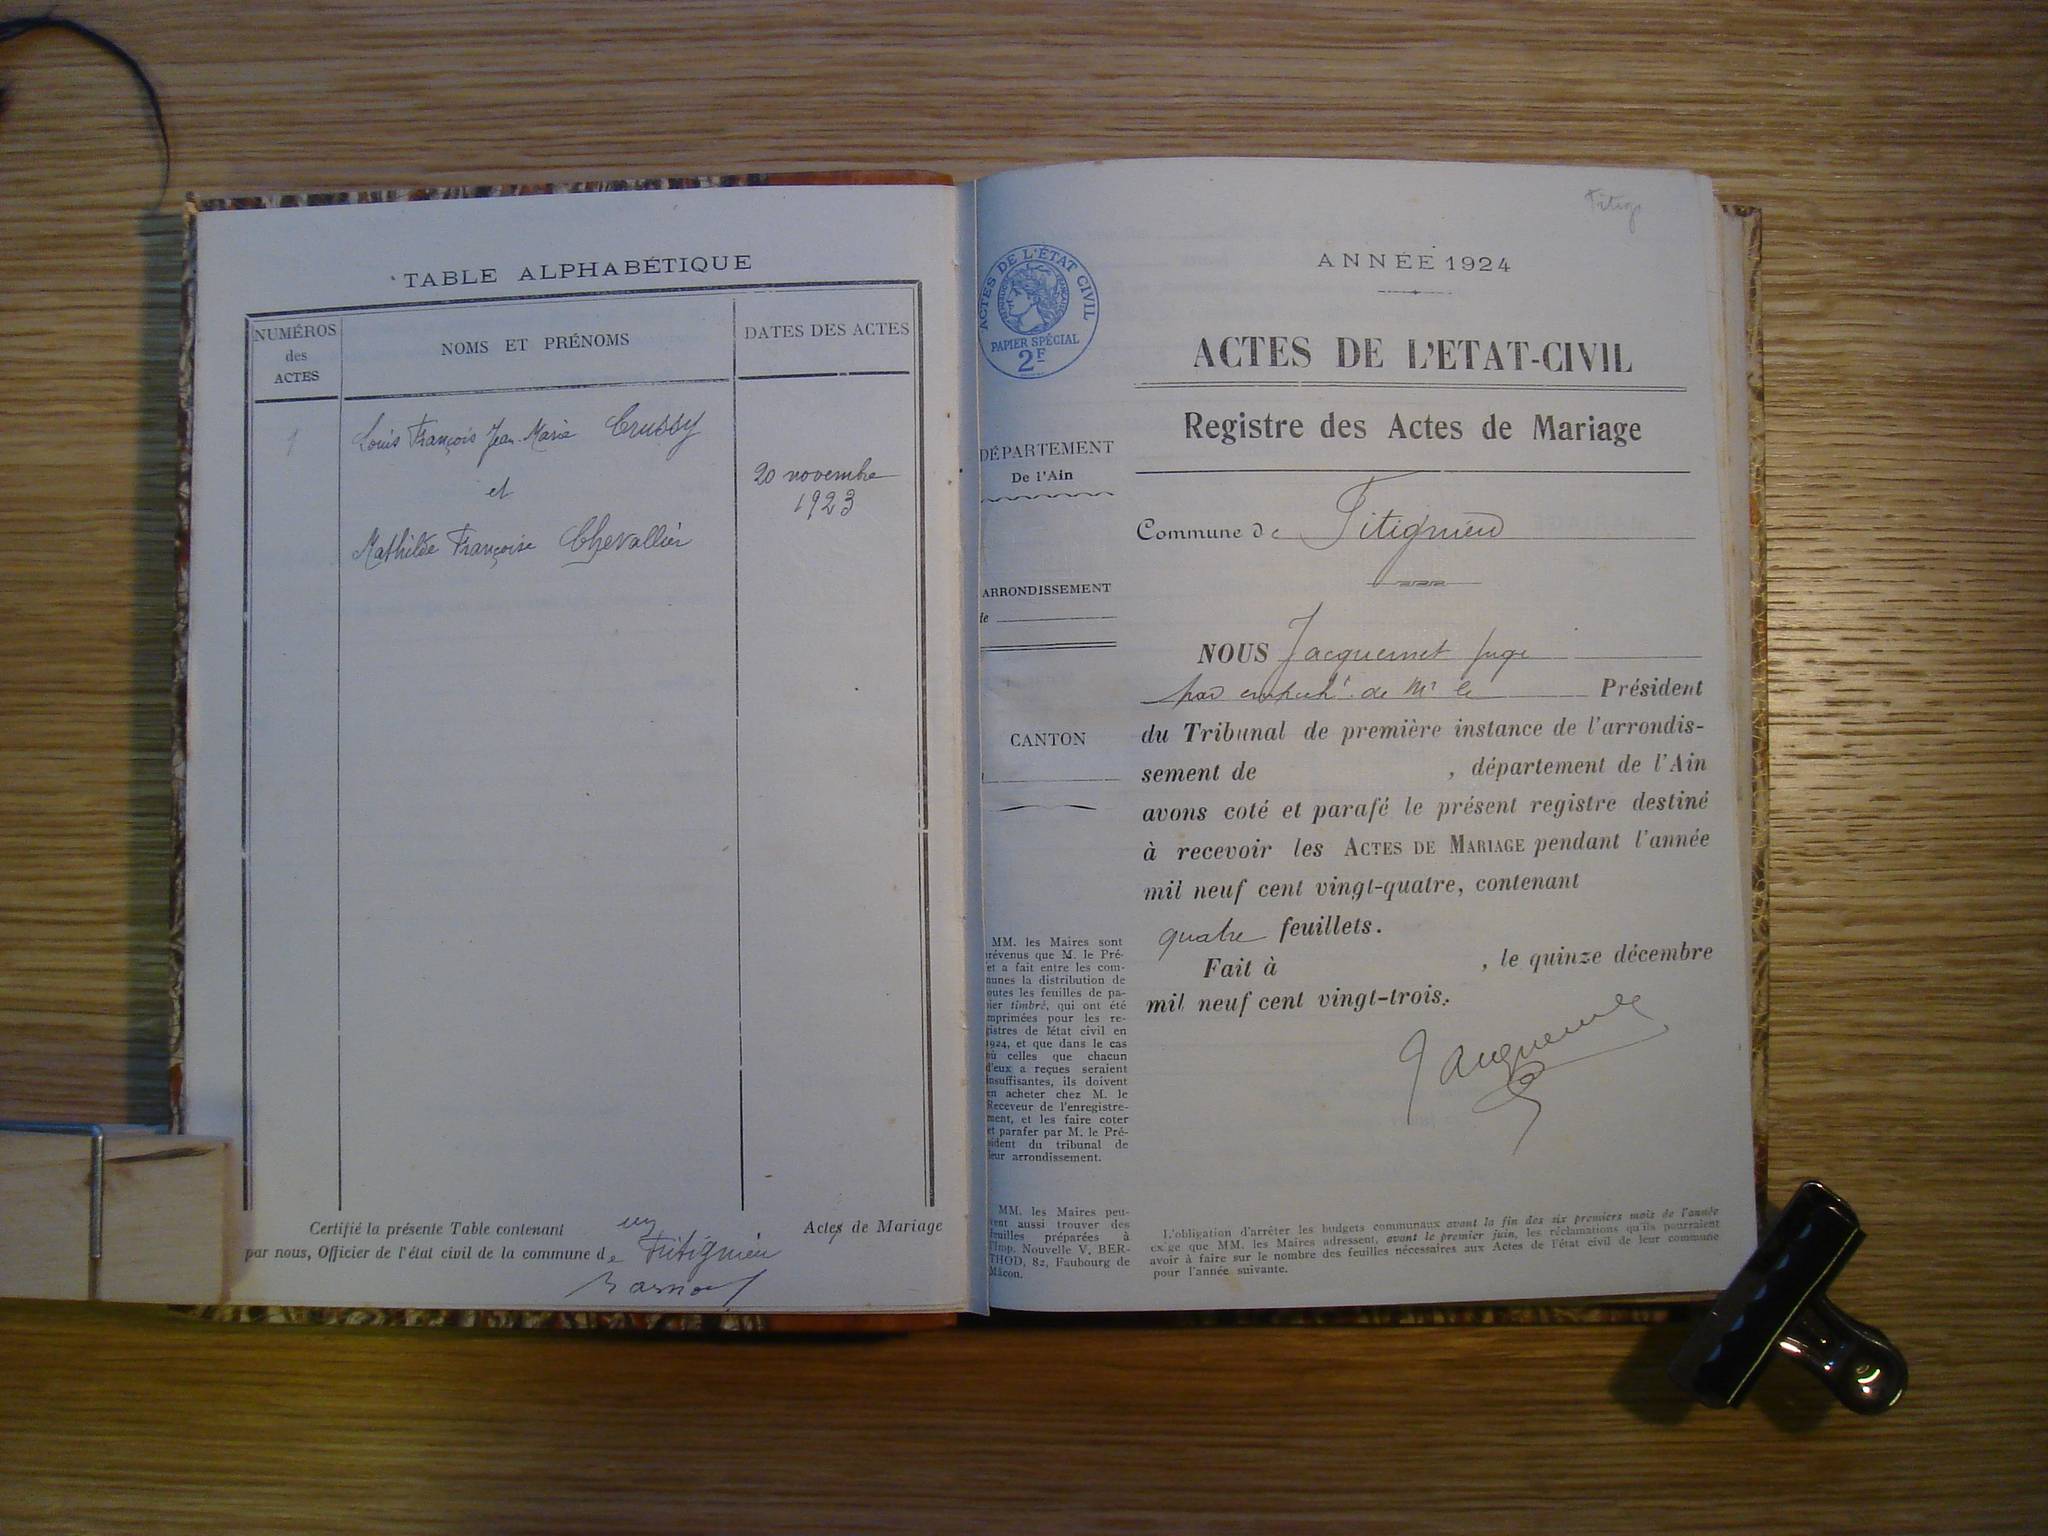 TABLE ALPHABÉTIQUE
NUMÉROS
des
ACTES
NOMS ET PRÉNOMS
DATES DES ACTES
1
Louis François Jean-Marie Crussy
et
Mathilde Françoise Chevallier
20 novembre
1923
Certifié la présente Table contenant un Actes de Mariage
par nous, Officier de l'état civil de la commune de Fitignieu
ACTES DE L'ÉTAT CIVIL
RÉPUBLIQUE FRANÇAISE
PAPIER SPÉCIAL
2F
DÉPARTEMENT
De l'Ain
ARRONDISSEMENT
de
CANTON
MM. les Maires sont
prévenus que M. le Pré-
fet a fait entre les com-
munes la distribution de
toutes les feuilles de pa-
pier timbré, qui ont été
imprimées pour les re-
gistres de l'état civil en
1924, et que dans le cas
où celles que chacun
d'eux a reçues seraient
insuffisantes, ils doivent
en acheter chez M. le
Receveur de l'enregistre-
ment, et les faire coter
et parafer par M. le Pré-
sident du tribunal de
leur arrondissement.
MM. les Maires peu-
vent aussi trouver des
feuilles préparées à
l'Imp. Nouvelle V. BER-
THOD, 82, Faubourg de
Mâcon.
Fitig
ANNÉE 1924
ACTES DE L'ETAT-CIVIL
Registre des Actes de Mariage
Commune de Fitignieu
NOUS Jacquemet juge
par empecht. de Mr le Président
du Tribunal de première instance de l'arrondis-
sement de , département de l'Ain
avons coté et parafé le présent registre destiné
à recevoir les ACTES DE MARIAGE pendant l'année
mil neuf cent vingt-quatre, contenant
quatre feuillets.
Fait à , le quinze décembre
mil neuf cent vingt-trois.
Jacquemet
L'obligation d'arrêter les budgets communaux avant la fin des six premiers mois de l'année
exige que MM. les Maires adressent, avant le premier juin, les réclamations qu'ils pourraient
avoir à faire sur le nombre des feuilles nécessaires aux Actes de l'état civil de leur commune
pour l'année suivante.